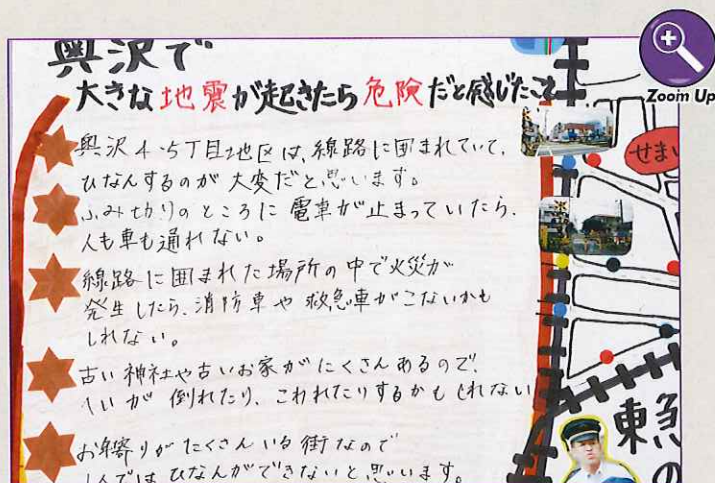 奥沢で
大きな地震が起きたら危険だと感じたこと
奥沢4・5丁目地区は、線路に囲まれていて、
ひなんするのが大変だと思います。
ふみ切りのところに電車が止まっていたら、
人も車も通れない。
線路に囲まれた場所の中で火災が
発生したら、消防車や救急車がこないかも
しれない。
古い神社や古いお家がたくさんあるので、
へいが倒れたり、こわれたりするかもしれない
お年寄りがたくさんいる街なので
1人ではひなんができないと思います。
Zoom Up
せまい
東急
の